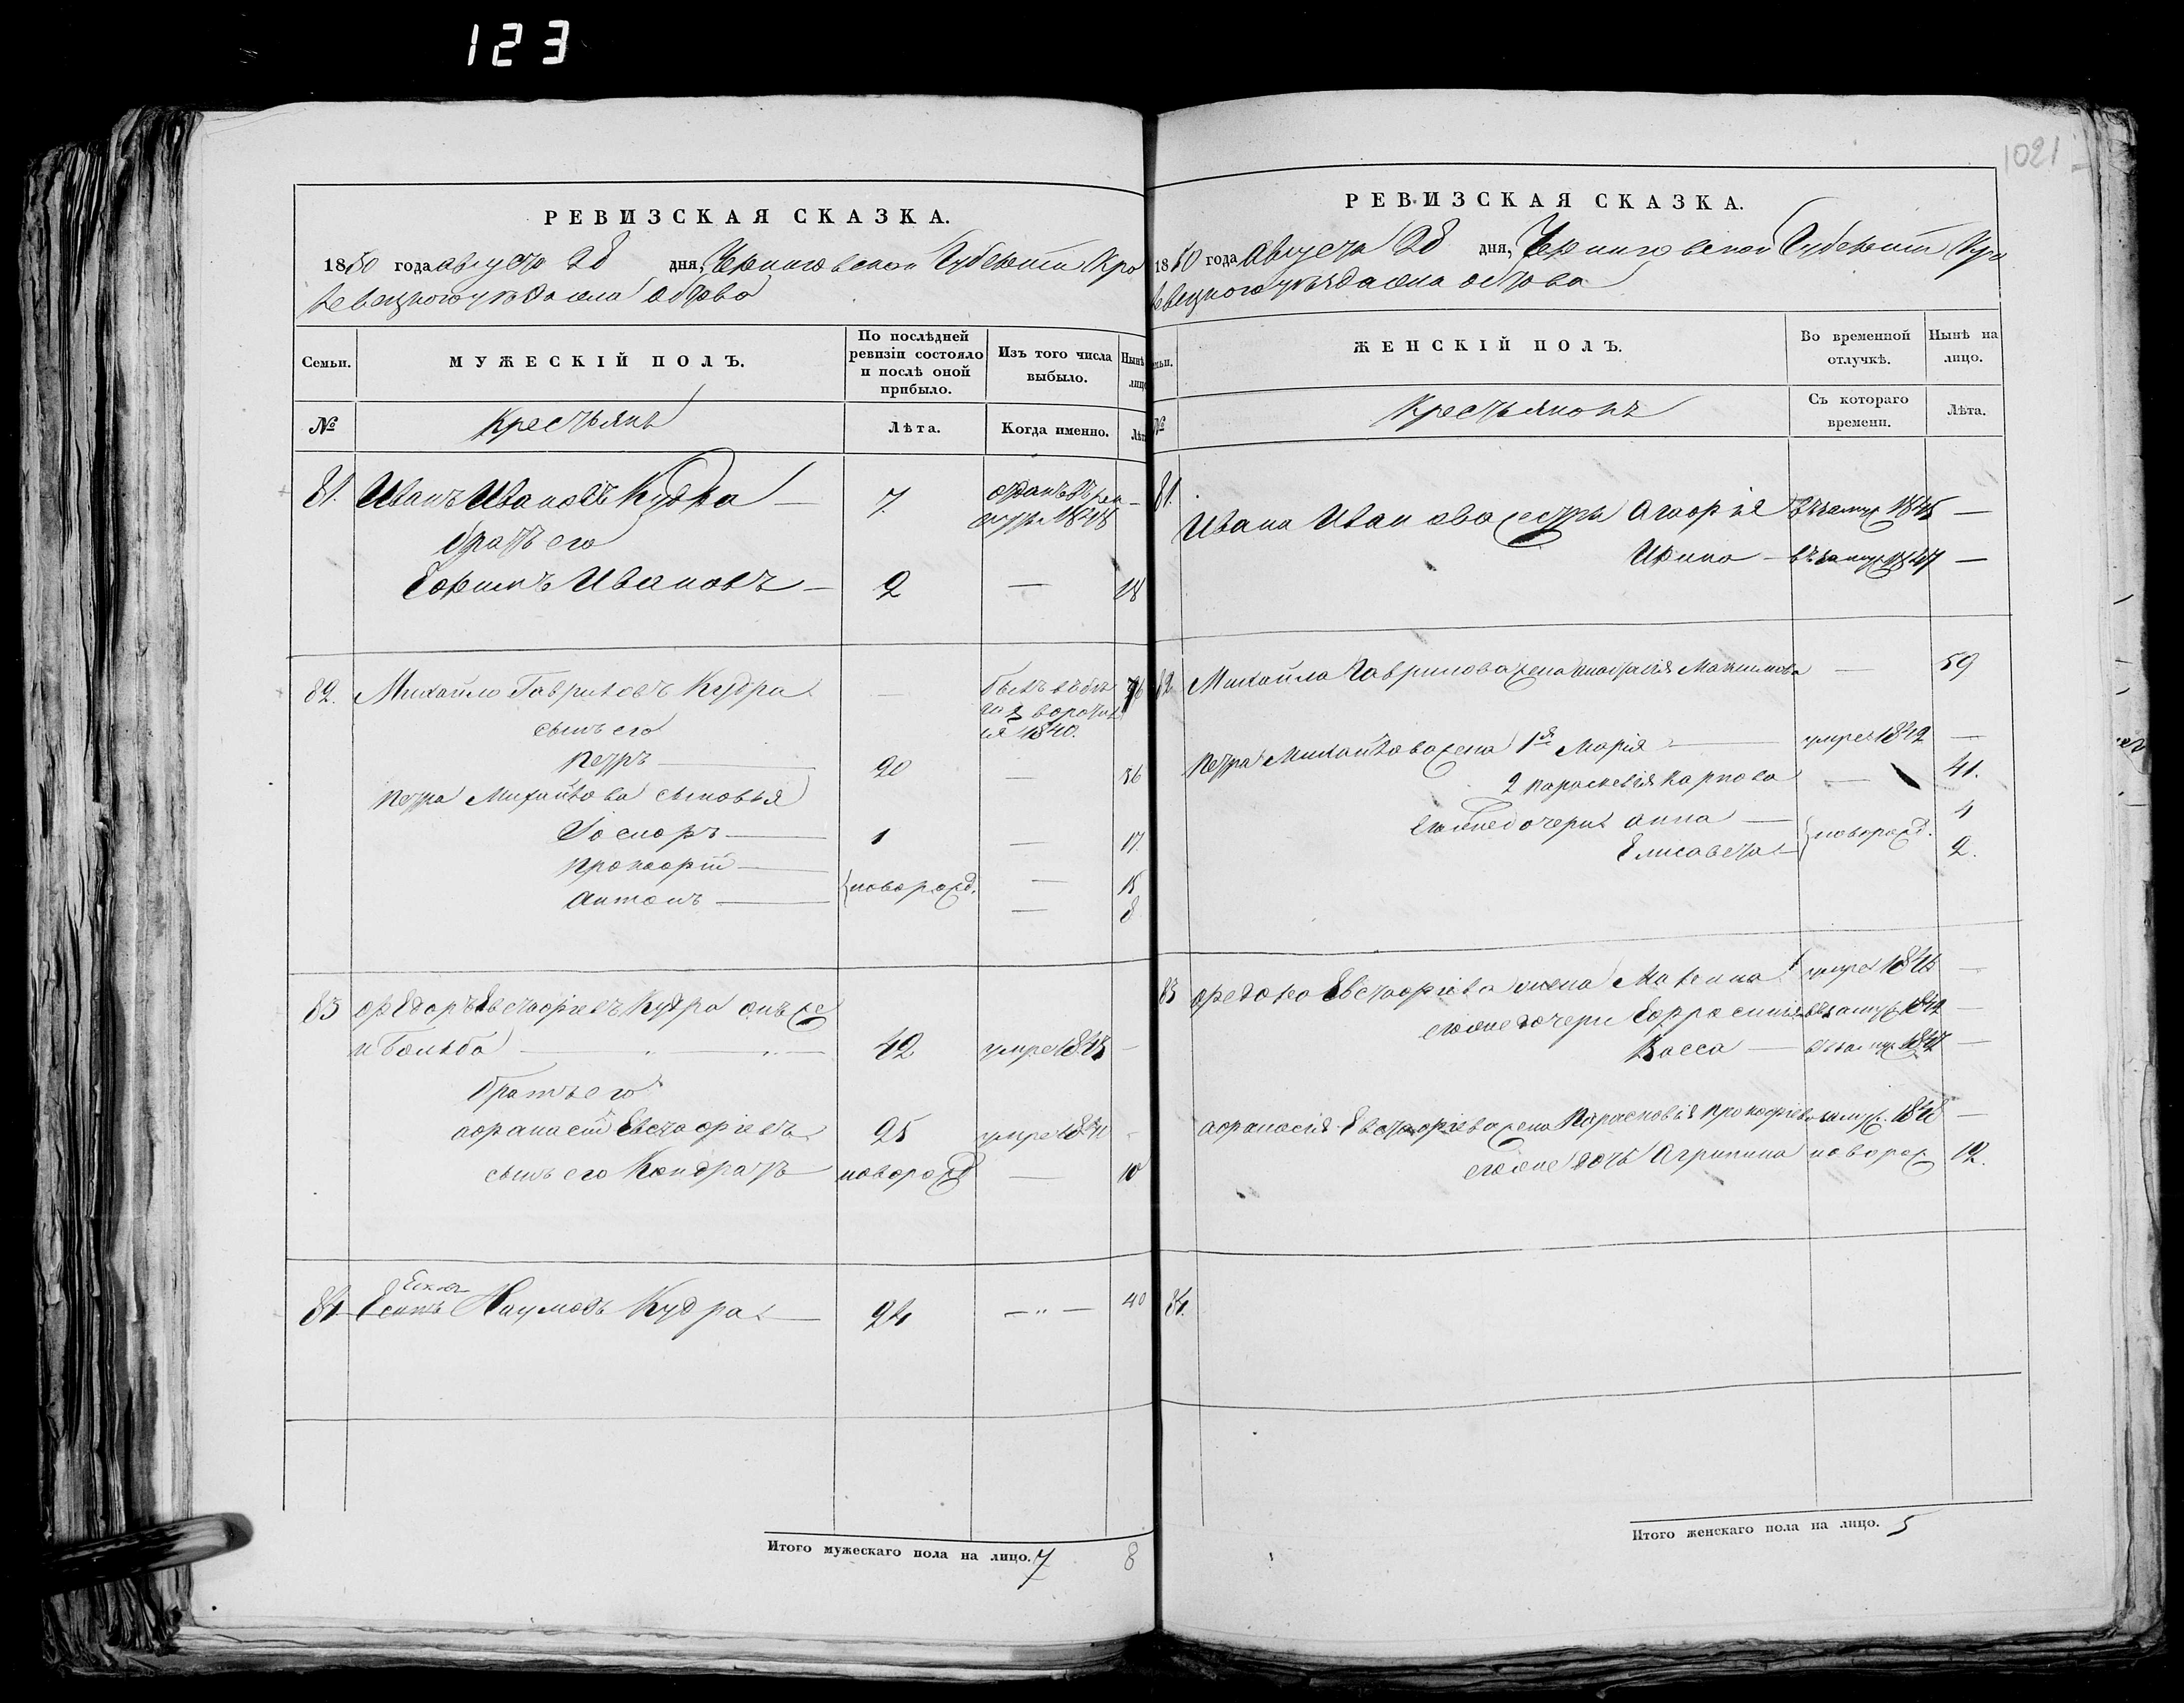 123
1021
РЕВИЗСКАЯ СКАЗКА.
1850 года августа 28 дня, Черниговской Губернiи Кро
левецкого уѣзда села Острова
Семьи.
МУЖЕСКІЙ ПОЛЪ.
По послѣдней ревизіи состояло и послѣ оной прибыло.
Изъ того числа выбыло.
Нынѣ
лицо
№
Крестьянъ
Лѣта.
Когда именно.
Лѣт
81. Иванъ Ивановъ Кудра — 7. отданъ въ рек —
братъ его
Ефимъ Ивановъ — 2 — 18
82. Михайло Гавриловъ Кудра — былъ въ бѣ 76
1840.
сынъ его
Петръ — 20 — 36
Петра Михайлова сыновья
— 1 — 17.
Прокофій — новорожд. — 15
Антонъ — — 8
83 Федоръ Евстафіевъ Кудра онъ же
42 умре 1845 —
братъ его
Афанасій Евстафіевъ 25 умре —
сынъ его Кондратъ новорожд — 10
84. Есипъ Наумовъ Кудра — 24 — " — 40
Итого мужескаго пола на лицо. 7 8
РЕВИЗСКАЯ СКАЗКА.
1850 года августа 28 дня, Черниговской Губернiи Кро
левецкого уѣзда села острова
№
ЖЕНСКІЙ ПОЛЪ.
Во временной отлучкѣ.
Нынѣ на лицо.
Крестьянокъ
Съ котораго времени.
Лѣта.
81.
Ивана Иванова сестры въ замуж 1845 —
Ирина — въ замуж 1847 —
82 Михайла Гаврилова жена Максимова — 59
Петра Михайлова жена 1я Марія — умре 1842 —
2 Параскевія Карпова — 41.
дочери анна — новорожд. 4
Елисавета — 2.
83 Федора Евстафіева жена умре —
дочери Ефросинія въ замуж 1842 —
Васса — въ замуж 1847 —
Афанасія Евстафіева жена Парасковія Прокофіева замуж. —
дочь Агрипина новорож 12.
84.
Итого женскаго пола на лицо. 5